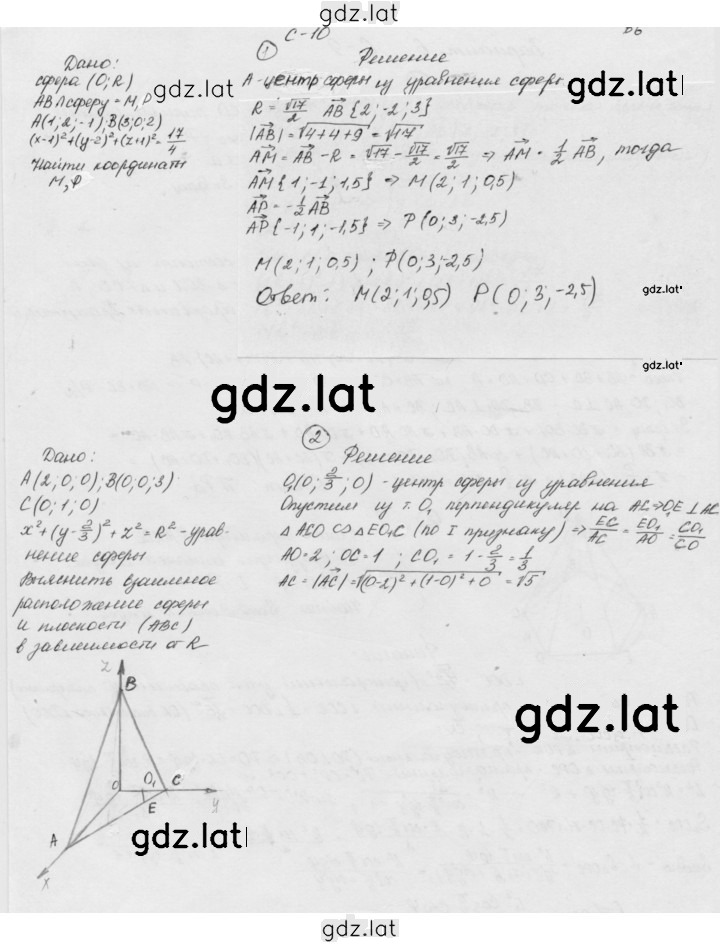 gdz.lat
С-10
В6
①
Дано:
сфера (О; R)
АВ ∩ сферу = М, Р
А(1; 2; -1), В(3; 0; 2)
(x-1)²+(y-2)²+(z+1)²=17/4
Найти координаты
М, Р
Решение
А - центр сферы из уравнения сферы
R = √17/2 AB⃗{2; -2; 3}
|AB⃗| = √4+4+9 = √17
AM⃗ = AB⃗ - R = √17 - √17/2 = √17/2 ⇒ AM⃗ = 1/2 AB⃗, тогда
AM⃗{1; -1; 1,5} ⇒ М(2; 1; 0,5)
AP⃗ = -1/2 AB⃗
AP⃗{-1; 1; -1,5} ⇒ Р(0; 3; -2,5)
М(2; 1; 0,5); Р(0; 3; -2,5)
Ответ: М(2; 1; 0,5) Р(0; 3; -2,5)
gdz.lat
gdz.lat
gdz.lat
gdz.lat
②
Дано:
А(2; 0; 0); В(0; 0; 3)
С(0; 1; 0)
x²+(y-2/3)²+z²=R² - урав-
нение сферы
Выяснить взаимное
расположение сферы
и плоскости (АВС)
в зависимости от R
Решение
О₁(0; 2/3; 0) - центр сферы из уравнения
Опустим из т. О₁ перпендикуляр на АС ⇒ О₁Е ⊥ АС
△ АСО ∽ △ ЕО₁С (по I признаку) ⇒ EC/AC = EO₁/AO = CO₁/CO
АО = 2; ОС = 1; СО₁ = 1 - 2/3 = 1/3
АС = |AC⃗| = √(0-2)²+(1-0)²+0 = √5
z
B
O
O₁
C
y
E
A
x
gdz.lat
gdz.lat
gdz.lat